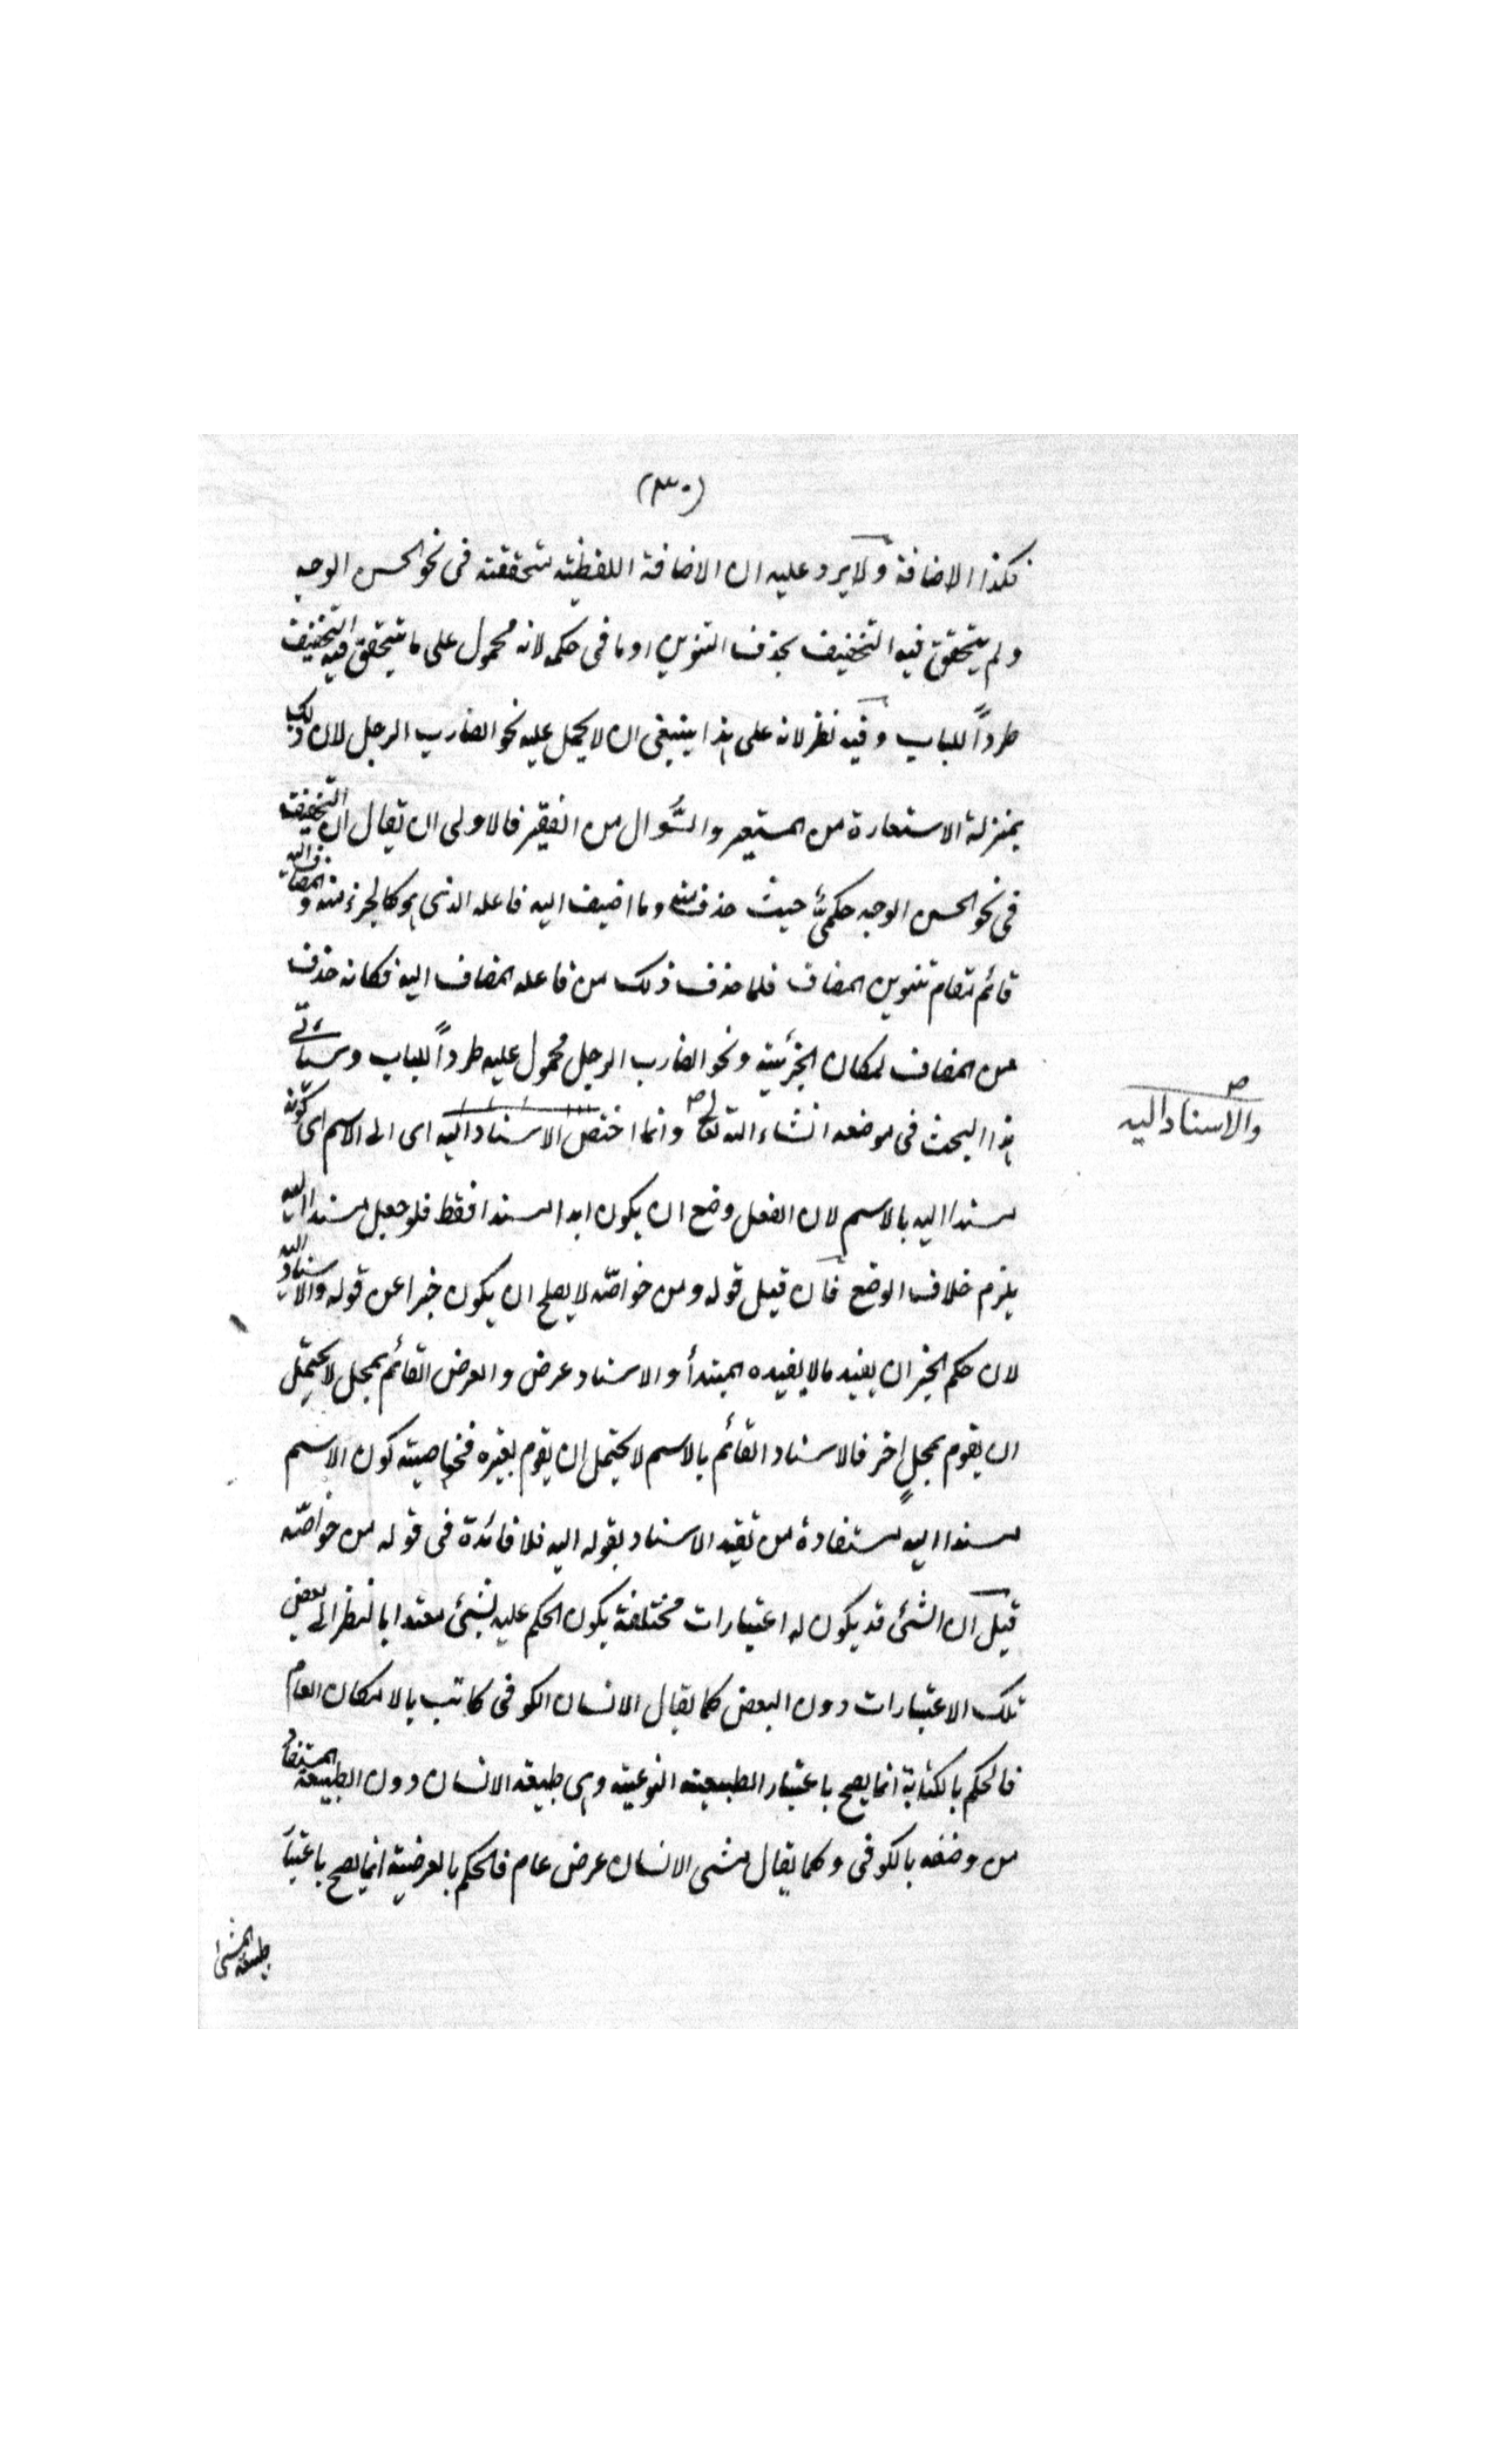 (٣٠)
فكذا الاضافة ولا يرد عليه ان الاضافة اللفظية متحققة فى نحو الحسن الوجه
ولم يتحقق فيه التخفيف بحذف التنوين او ما فى حكمه لانه محمول على ما يتحقق فيه التخفيف
طرداً للباب وفيه نظر لانه على هذا ينبغى ان لا يحمل عليه نحو الضارب الرجل لان ذلك
بمنزلة الاستعارة من المستعير والسُّوال من الفقير فالاولى ان يقال ان التخفيف
فى نحو الحسن الوجه حكمىٌّ حيث حذف منه وما اضيف اليه فاعله الذى هو كالجزء منه والمضاف اليه
قائم مقام تنوين المضاف فلما حذف ذلك من فاعله المضاف اليه فكانه حذف
من المضاف لمكان الجزئية ونحو الضارب الرجل محمول عليه طرداً للباب وسيأتى
هذا البحث فى موضعه انشاء الله تعا وانما اختص الاسناد اليه اى الى الاسم اى كونه
والاسناد اليه
ص
مسندا اليه بالاسم لان الفعل وضع ان يكون ابدا مسندا فقط فلو جعل مسندا اليه
يلزم خلاف الوضع فان قيل قوله ومن خواصّه لا يصلح ان يكون خبرا عن قوله والاسناد اليه
لان حكم الخبر ان يفيد ما لا يفيده المبتدأ والاسناد عرض والعرض القائم بمحل لا يحتمل
ان يقوم بمحلٍ اخر فالاسناد القائم بالاسم لا يحتمل ان يقوم بغيره فخاصيته كون الاسم
مسندا اليه مستفادة من تقيد الاسناد بقوله اليه فلا فائدة فى قوله من خواصّه
قيل ان الشئ قد يكون له اعتبارات مختلفة يكون الحكم عليه بشئ مفيدا بالنظر الى بعض
تلك الاعتبارات دون البعض كما يقال الانسان الكوفى كاتب بالامكان العام
فالحكم بالكتابة انما يصح باعتبار الطبيعة النوعية وهى طبيعة الانسان دون الطبيعة المستفاد
من وصفه بالكوفى وكما يقال مشى الانسان عرض عام فالحكم بالعرضية انما يصح باعتبار
طبيعة المشى